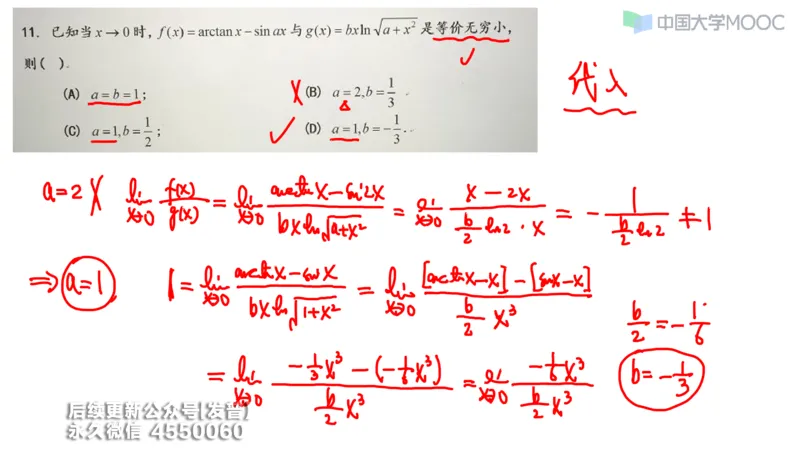 中国大学MOOC
11. 已知当 x → 0 时, f(x) = arctan x − sin ax 与 g(x) = bx ln √(a + x²) 是等价无穷小,
则( ).
(A) a = b = 1;
X (B) a = 2, b = 1/3 .
(C) a = 1, b = 1/2 ;
✓ (D) a = 1, b = −1/3 .
代入
a=2 X lim x→0 f(x)/g(x) = lim x→0 (arctan x − sin 2x)/(bx ln √(a+x²)) = lim x→0 (x − 2x)/(b/2 ln2 · x) = − 1/(b/2 ln2) ≠ 1
⇒ a=1 1 = lim x→0 (arctan x − sin x)/(bx ln √(1+x²)) = lim x→0 ([arctan x − x] − [sin x − x])/(b/2 x³)
b/2 = −1/6
= lim x→0 (−1/3 x³ − (−1/6 x³))/(b/2 x³) = lim x→0 (−1/6 x³)/(b/2 x³)
b = −1/3
后续更新公众号[发普]
永久微信 4550060